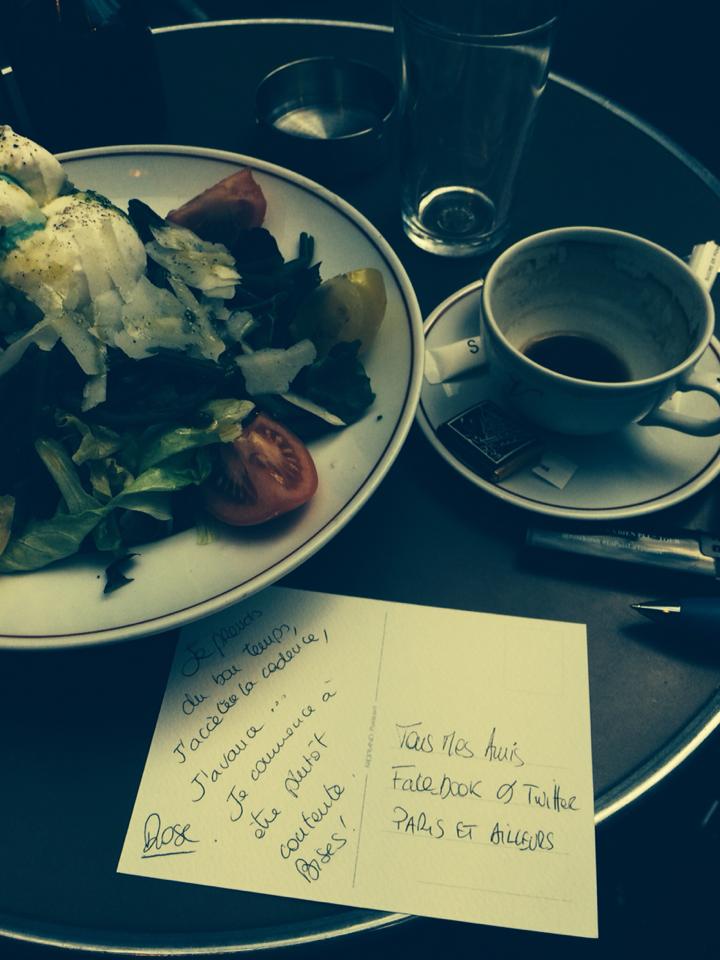 Je prends
du bon temps,
J'accélère la cadence,
J'avance ...
Je commence à
être plutôt
contente.
Bises!
Rose
Tous Mes Amis
FaceBook & Twitter
PARIS ET AILLEURS
S